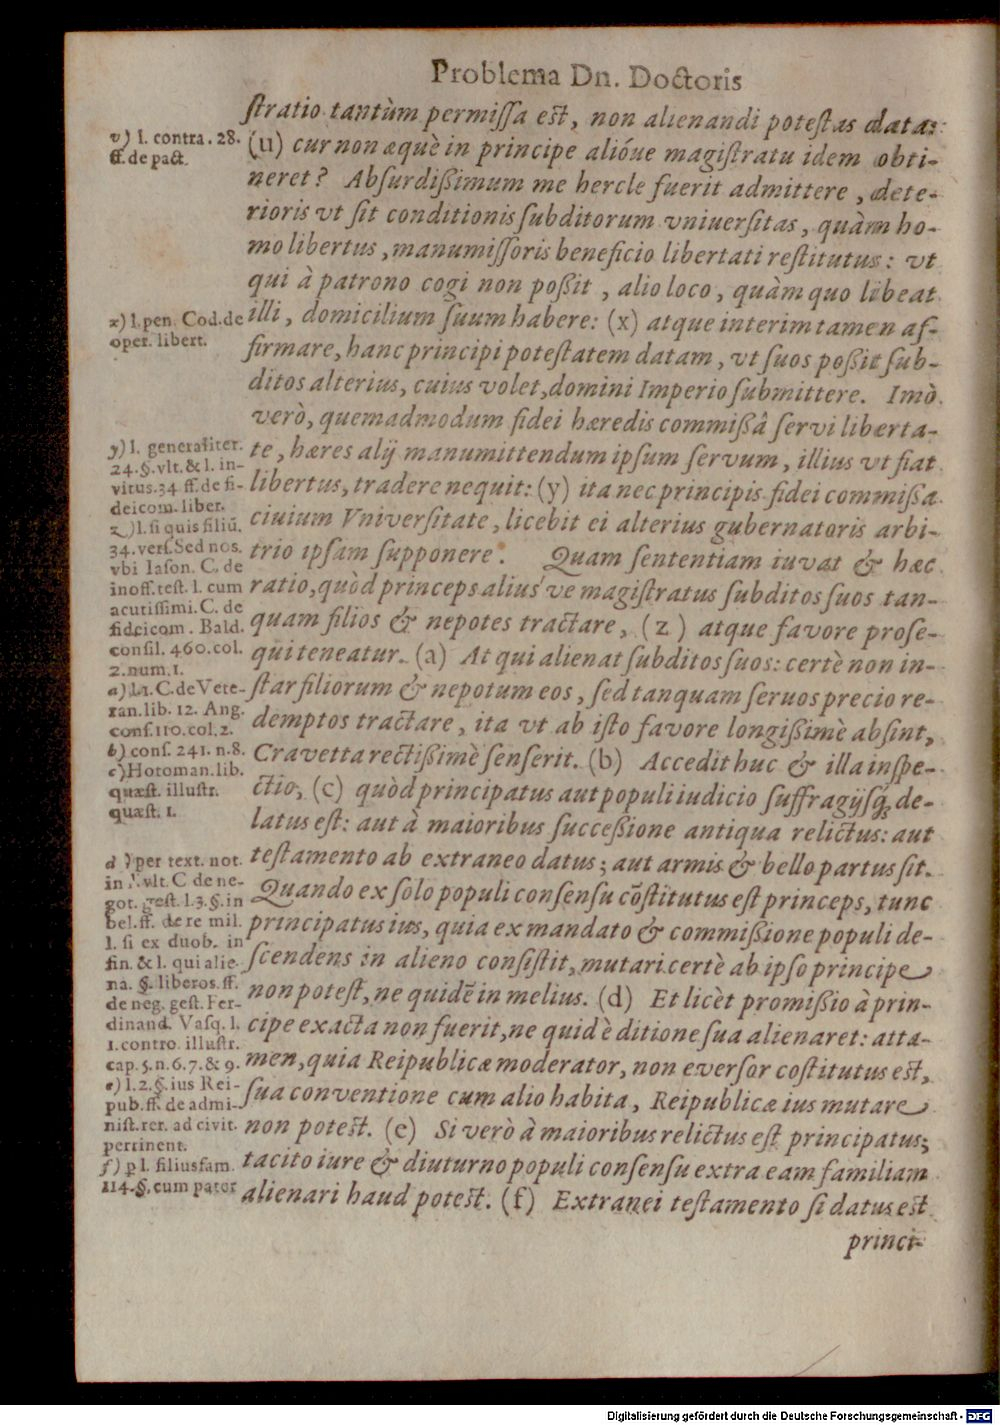 Problema Dn. Doctoris
ſtratio tantùm permiſſa est, non alienandi poteſtas data:
(u) cur non æquè in principe alióue magiſtratu idem obti-
neret? Abſurdißimum me hercle fuerit admittere, dete-
rioris vt ſit conditionis ſubditorum vniuerſitas, quàm ho-
mo libertus, manumiſſoris beneficio libertati reſtitutus: vt
qui à patrono cogi non poßit, alio loco, quàm quo libeat
illi, domicilium ſuum habere: (x) atque interim tamen af-
firmare, hanc principi poteſtatem datam, vt ſuos poßit ſub-
ditos alterius, cuius volet, domini Imperio ſubmittere. Imò
verò, quemadmodum fidei hæredis commißâ ſervi liberta-
te, hæres alij manumittendum ipſum ſervum, illius vt fiat
libertus, tradere nequit: (y) ita nec principis fidei commißa
ciuium Vniverſitate, licebit ei alterius gubernatoris arbi-
trio ipſam ſupponere. Quam ſententiam iuvat & hæc
ratio, quòd princeps alius've magiſtratus ſubditos ſuos tan-
quam filios & nepotes tractare, (z) atque favore proſe-
qui teneatur. (a) At qui alienat ſubditos ſuos: certè non in-
ſtar filiorum & nepotum eos, ſed tanquam ſeruos precio re-
demptos tractare, ita vt ab iſto favore longißimè abſint,
Cravetta rectißimè ſenſerit. (b) Accedit huc & illa inſpe-
ctio, (c) quòd principatus aut populi iudicio ſuffragijsq́; de-
latus est: aut à maioribus ſucceßione antiqua relictus: aut
teſtamento ab extraneo datus; aut armis & bello partus ſit.
Quando ex ſolo populi conſenſu cõſtitutus est princeps, tunc
principatus ius, quia ex mandato & commißione populi de-
ſcendens in alieno conſiſtit, mutari certè ab ipſo principe
non poteſt, ne quidẽ in melius. (d) Et licèt promißio à prin-
cipe exacta non fuerit, ne quid è ditione ſua alienaret: atta-
men, quia Reipublicæ moderator, non everſor coſtitutus est,
ſua conventione cum alio habita, Reipublicæ ius mutare
non potest. (e) Si verò à maioribus relictus est principatus;
tacito iure & diuturno populi conſenſu extra eam familiam
alienari haud potest. (f) Extranei teſtamento ſi datus est
princi-
v) l. contra. 28.
ff. de pact.
x) l. pen. Cod. de
oper. libert.
y) l. generaliter.
24. §. vlt. & l. in-
vitus. 34 ff. de fi-
deicom. liber.
z) l. ſi quis filiũ.
34. verſ. Sed nos.
vbi Iaſon. C. de
inoff. teſt. l. cum
acutiſſimi. C. de
fideicom. Bald.
conſil. 460. col.
2. num. 1.
a) l. 1. C. de Vete-
ran. lib. 12. Ang.
conſ. 110. col. 2.
b) conſ. 241. n. 8.
c) Hotoman. lib.
quæſt. illuſtr.
quæſt. 1.
d) per text. not.
in l. vlt. C de ne-
got. geſt. l. 3. §. in
bel. ff. de re mil.
l. ſi ex duob. in
fin. & l. qui alie-
na. §. liberos. ff.
de neg. geſt. Fer-
dinand. Vaſq. l.
1. contro. illuſtr.
cap. 5. n. 6. 7. & 9.
e) l. 2. §. ius Rei-
pub. ff. de admi-
niſt. rer. ad civit.
pertinent.
f) p l. filiusfam.
114. §. cum pater
Digitalisierung gefördert durch die Deutsche Forschungsgemeinschaft - DFG